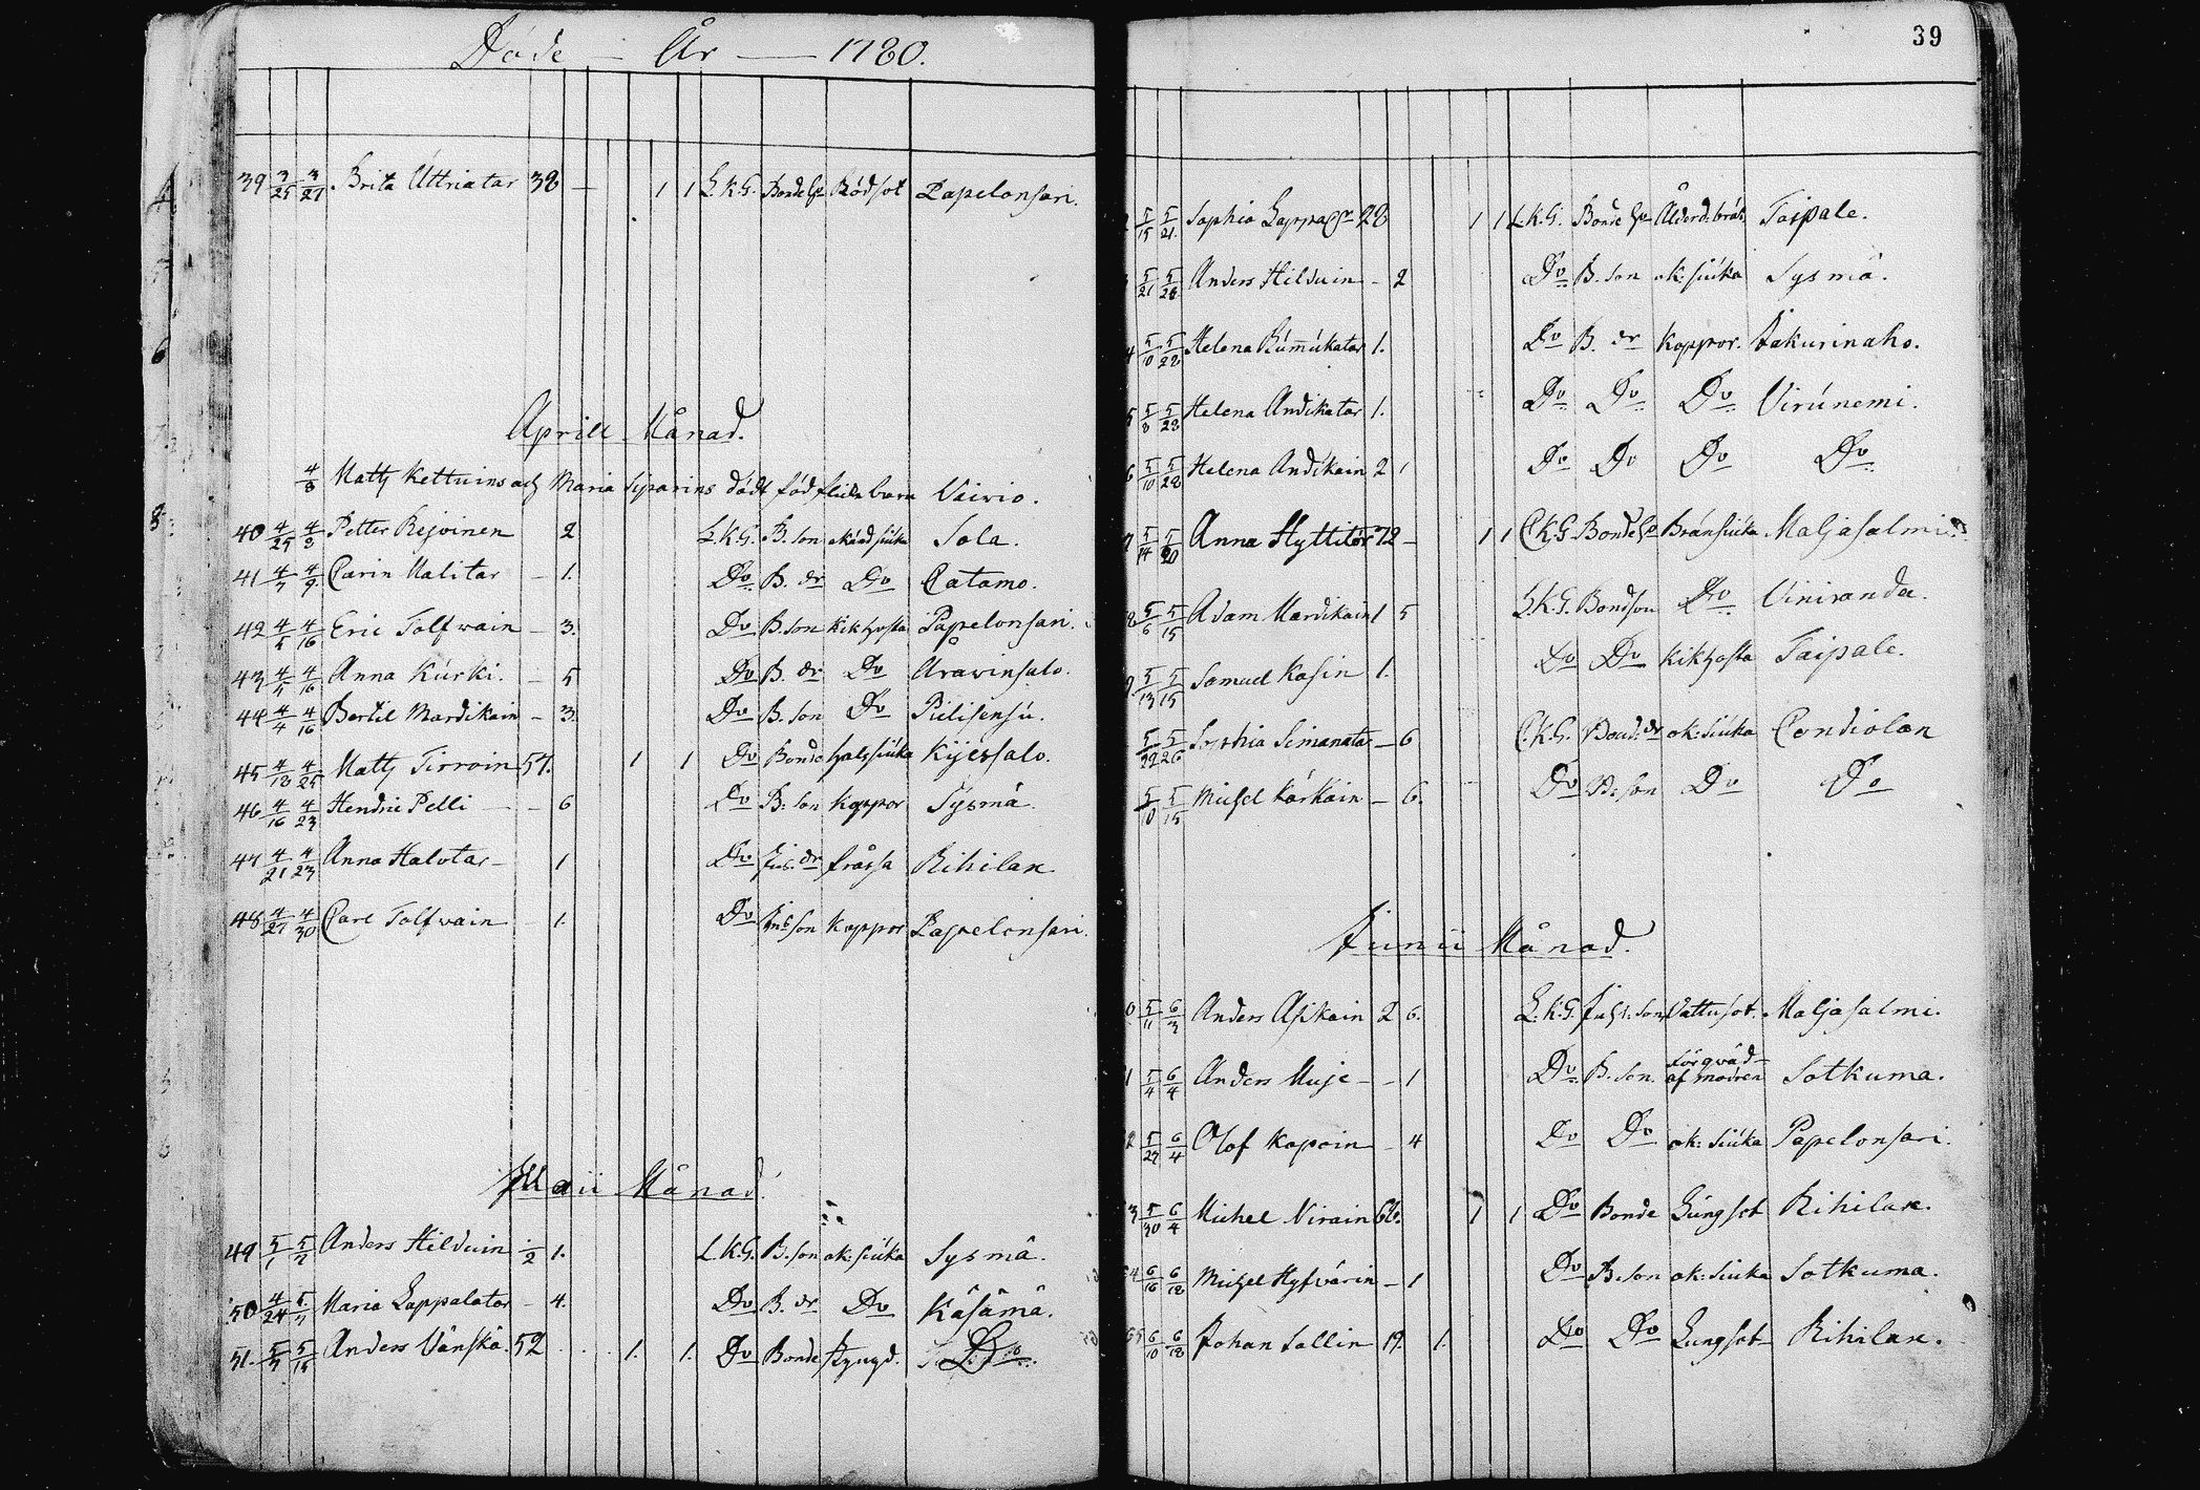 Döde — År — 1780.
39 3/25 3/27 Brita Uttriatar 38 — 1 1 L.K.G. Rödsot Papelonsari.
Aprill Månad.
4/8 Matts Kettuins och Maria Siparins dödt född barn Vaivio.
40 4/25 4/8 Petter Rejoinen 2 L.K.G. B. son Sola.
41 4/7 4/9 Carin Malitar — 1. Do B. dr Do Catamo.
42 4/16 Eric Tolfwain — 3. Do B. son Kikhosta Papelonsari.
43 4/5 4/16 Anna Kurki. — 5 Do B. dr Do Aravinsalo.
44 4/4 4/16 Bertil Mardikain — 3. Do B. son Do Pielisensu.
45 4/18 4/25 Matts Tirroin 57. 1 1 Do Bonde halssiuka Kijessalo.
46 4/16 4/23 Hendric Pelli — 6 Do B: son Koppor Sysmä.
47 4/21 4/23 Anna Halotar — 1 Do dr fråssa Rihilax
48 4/27 4/30 Carl Tolfwain 1. Do son Koppor Papelonsari.
Maii Månad.
49 5/1 5/7 Anders Hilduin 1/2 1. L.K.G. B. son ok: siuka Sysmä.
50 4/24 5/7 Maria Lappalatar — 4. Do B. dr Do Käsämä.
51. 5/7 5/15 Anders Vänskä. 52 1. 1. Do Bonde Do
39
5/15 5/21. Sophia 28 1 1 L.K.G. Ålderd: Taipale.
5/21 5/28 Anders Hilduin — 2 Do B. son ok: siuka Sysmä.
4 5/10 5/28 Helena Rummukatar 1. Do B. dr Koppor. Jakurinaho.
5 5/8 5/28 Helena Andikatar 1. Do Do Do Virunemi.
6 5/10 5/28 Helena Andikain 2 Do Do Do Do
7 5/14 5/20 Anna Hyttitär 72 — 1 1 C.K.G. Bränsiuka Maljasalmi.
8 5/6 5/15 Adam Mardikain 1 5 L.K.G. Bondson Do Viniranda.
9. 5/13 5/15 Samuel Kosin 1. Do Do Kikhosta Taipale.
5/22 5/26 Sophia Simanatar — 6 C.K.G. Bond: dr ok: siuka Condiolax
5/10 5/15 Michel Kärkäin — 6. Do B: son Do Do
Junii Månad.
0 5/11 6/3 Anders Asikain 2 6. L.K.G. son Vattusot. Maljasalmi.
1 5/4 6/4 Anders Muje — — 1 Do B. son. Förqväd — af modren Sotkuma.
2 5/27 6/4 Olof Kopoin — 4 Do Do ok: siuka Papelonsari.
3 5/30 6/4 Michel Nirain 66. 1 1 Do Bonde Lungsot Rihilax.
54 6/16 6/18 Michel Hyfvärin — 1 Do B. son ok: siuka Sotkuma.
55 6/10 6/18 Johan Sallin 19. 1. Do Do Lungsot Rihilax.